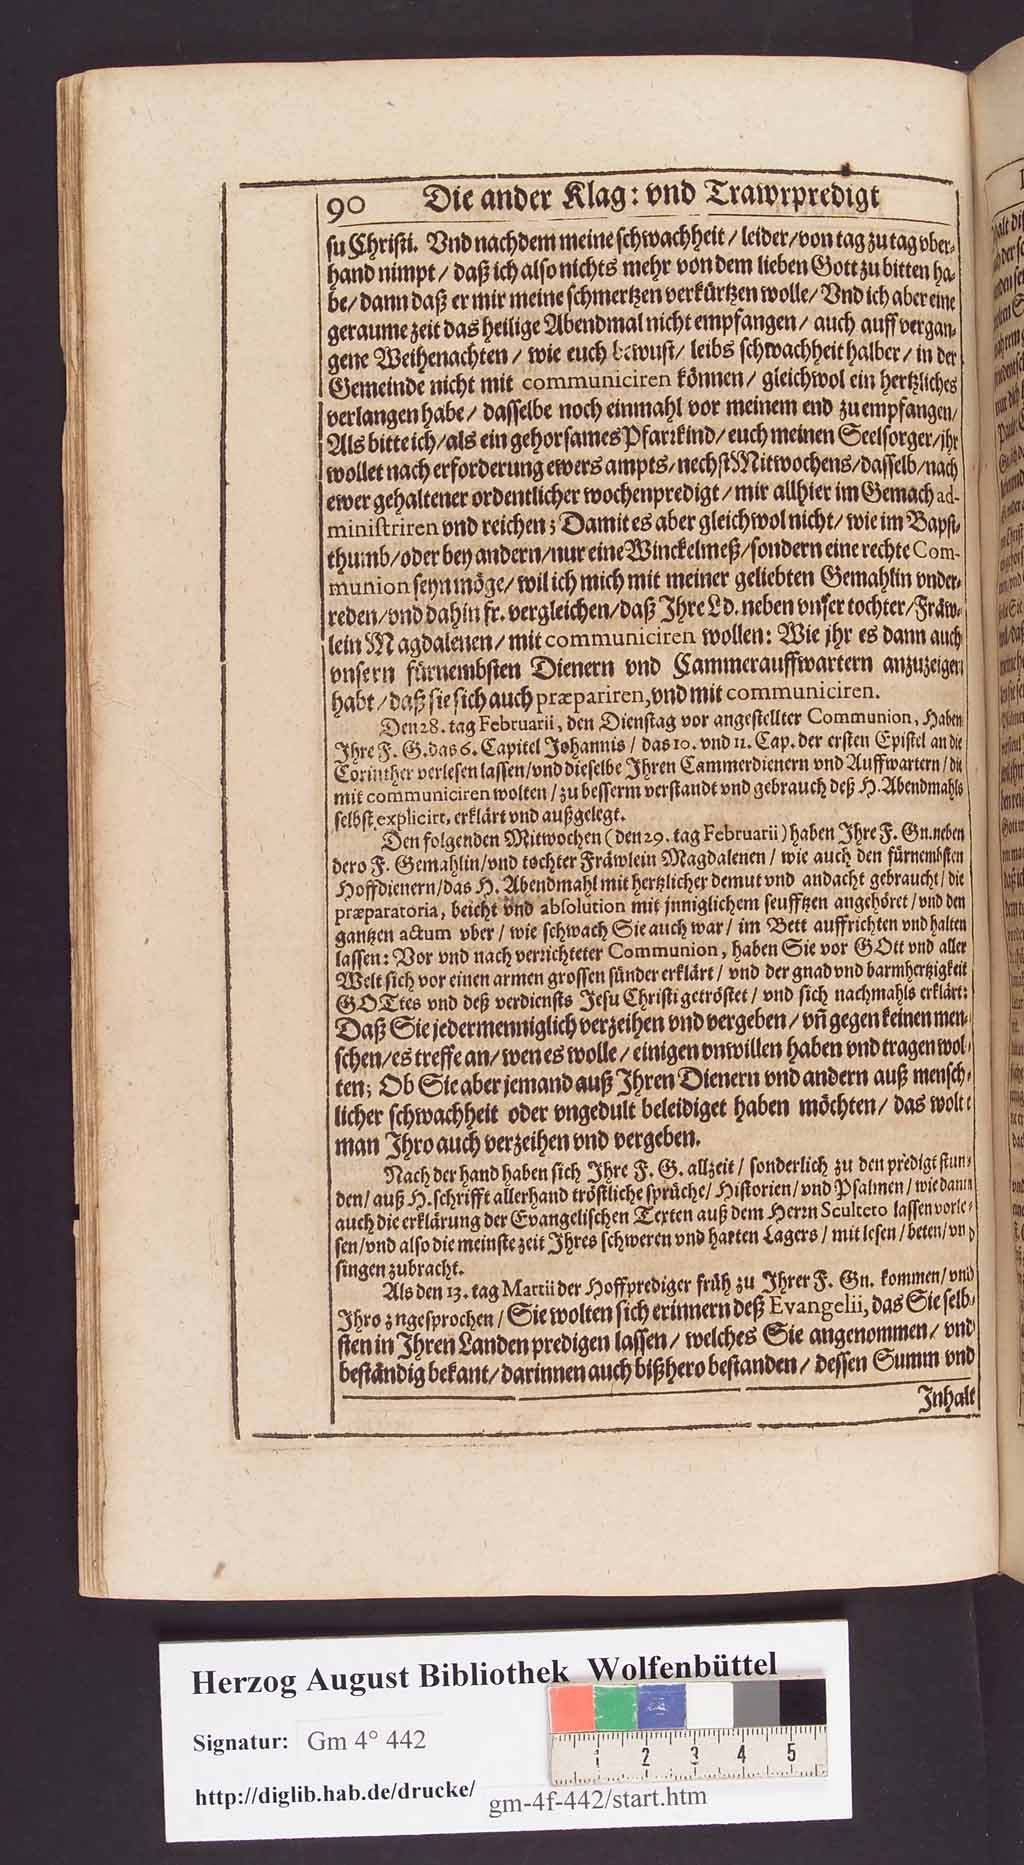 90 Die ander Klag: vnd Trawrpredigt
su Christi. Vnd nachdem meine schwachheit / leider / von tag zu tag vber-
hand nimpt / daß ich also nichts mehr von dem lieben Gott zu bitten ha-
be / dann daß er mir meine schmertzen verkürtzen wolle / Vnd ich aber eine
geraume zeit das heilige Abendmal nicht empfangen / auch auff vergan-
gene Weihenachten / wie euch bewust / leibs schwachheit halber / in der
Gemeinde nicht mit communiciren können / gleichwol ein hertzliches
verlangen habe / dasselbe noch einmahl vor meinem end zu empfangen /
Als bitte ich / als ein gehorsames Pfarrkind / euch meinen Seelsorger / jhr
wollet nach erforderung ewers ampts / nechst Mitwochens / dasselb / nach
ewer gehaltener ordentlicher wochenpredigt / mir allhier im Gemach ad-
ministriren vnd reichen; Damit es aber gleichwol nicht / wie im Bapst-
thumb / oder bey andern / nur eine Winckelmeß / sondern eine rechte Com-
munion seyn möge / wil ich mich mit meiner geliebten Gemahlin vnder-
reden / vnd dahin fr. vergleichen / daß Ihre Ld. neben vnser tochter / Fräw-
lein Magdalenen / mit communiciren wollen: Wie jhr es dann auch
vnsern fürnembsten Dienern vnd Cammerauffwartern anzuzeigen
habt / daß sie sich auch præpariren, vnd mit communiciren.
Den 28. tag Februarii, den Dienstag vor angestellter Communion, Haben
Ihre F. G. das 6. Capitel Johannis / das 10. vnd 11. Cap. der ersten Epistel an die
Corinther verlesen lassen / vnd dieselbe Ihren Cammerdienern vnd Auffwartern / die
mit communiciren wolten / zu besserm verstandt vnd gebrauch deß H. Abendmahls
selbst explicirt, erklärt vnd außgelegt.
Den folgenden Mitwochen (den 29. tag Februarii) haben Ihre F. Gn. neben
dero F. Gemahlin / vnd tochter Fräwlein Magdalenen / wie auch den fürnembsten
Hoffdienern / das H. Abendmahl mit hertzlicher demut vnd andacht gebraucht / die
præparatoria, beicht vnd absolution mit jnniglichem seufftzen angehöret / vnd den
gantzen actum vber / wie schwach Sie auch war / im Bett auffrichten vnd halten
lassen: Vor vnd nach verrichteter Communion, haben Sie vor GOtt vnd aller
Welt sich vor einen armen grossen sünder erklärt / vnd der gnad vnd barmhertzigkeit
GOTtes vnd deß verdiensts Jesu Christi getröstet / vnd sich nachmahls erklärt:
Daß Sie jedermenniglich verzeihen vnd vergeben / vñ gegen keinen men-
schen / es treffe an / wen es wolle / einigen vnwillen haben vnd tragen wol-
ten; Ob Sie aber jemand auß Ihren Dienern vnd andern auß mensch-
licher schwachheit oder vngedult beleidiget haben möchten / das wolte
man Ihro auch verzeihen vnd vergeben.
Nach der hand haben sich Ihre F. G. allzeit / sonderlich zu den predigt stun-
den / auß H. schrifft allerhand tröstliche sprüche / Historien / vnd Psalmen / wie dann
auch die erklärung der Evangelischen Texten auß dem Herrn Sculteto lassen vorle-
sen / vnd also die meinste zeit Ihres schweren vnd harten Lagers / mit lesen / beten / vnd
singen zubracht.
Als den 13. tag Martii der Hoffprediger früh zu Ihrer F. Gn. kommen / vnd
Ihro zugesprochen / Sie wolten sich erinnern deß Evangelii, das Sie selb-
sten in Ihren Landen predigen lassen / welches Sie angenommen / vnd
beständig bekant / darinnen auch bißhero bestanden / dessen Summ vnd
Inhalt
Herzog August Bibliothek Wolfenbüttel
Signatur: Gm 4° 442
http://diglib.hab.de/drucke/ gm-4f-442/start.htm
1 2 3 4 5